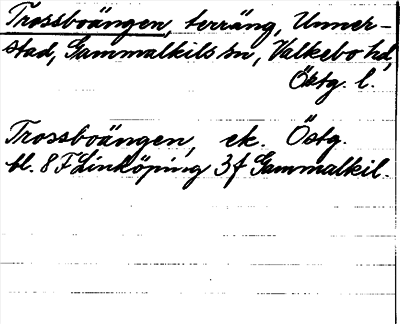 Trossboängen, terräng, Unner-
stad, Gammalkils sn, Valkebo hd,
Östg. l.
Trossboängen, ek. Östg.
bl. 8 F Linköping 3f Gammalkil.